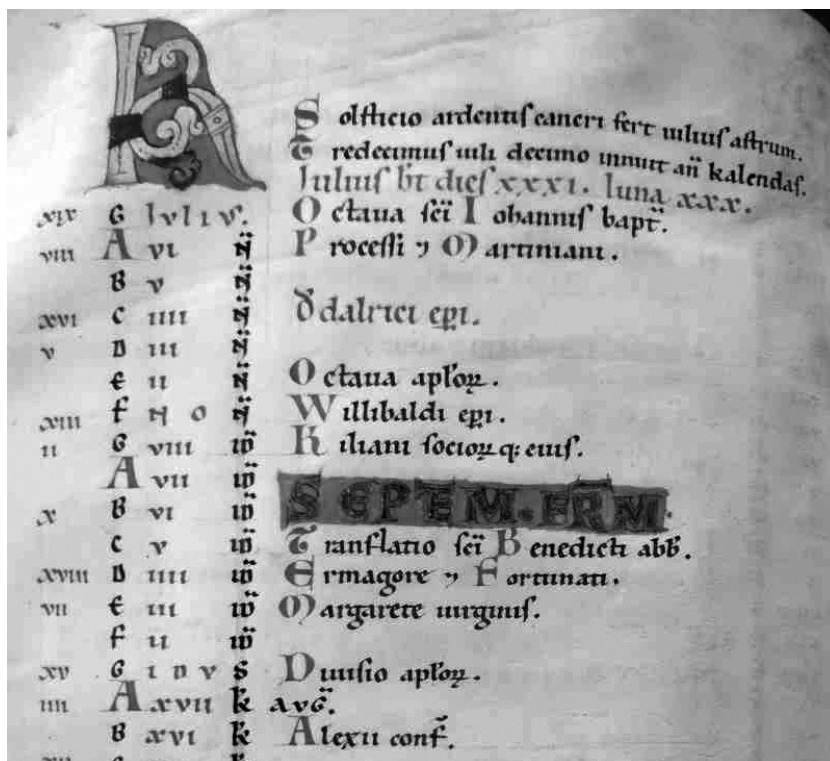 Solsticio ardentis cancri fert iulius astrum.
Tredecimus iuli decimo innuit añ kalendas.
KL Iulius ħt dies xxxi. luna xxx.
xix G Iulius. Octaua sc̄i Iohannis bapt̄.
viii A vi N̄ Processi ⁊ Martiniani.
B v N̄
xvi C iiii N̄ Ǒdalrici ep̄i.
v D iii N̄
E ii N̄ Octaua ap̄loꝝ.
xiii F NO N̄ Willibaldi ep̄i.
ii G viii id̄ Kiliani socioꝝ q: eius.
A vii id̄
x B vi id̄ SEPTEM. FRM.
C v id̄ Translatio sc̄i Benedicti abb̄.
xviii D iiii id̄ Ermagore ⁊ Fortunati.
vii E iii id̄ Margarete uirginis.
F ii id̄
xv G IDVS Diuisio ap̄loꝝ.
iiii A xvii k̄ AVḠ.
B xvi k̄ Alexii conf̄.